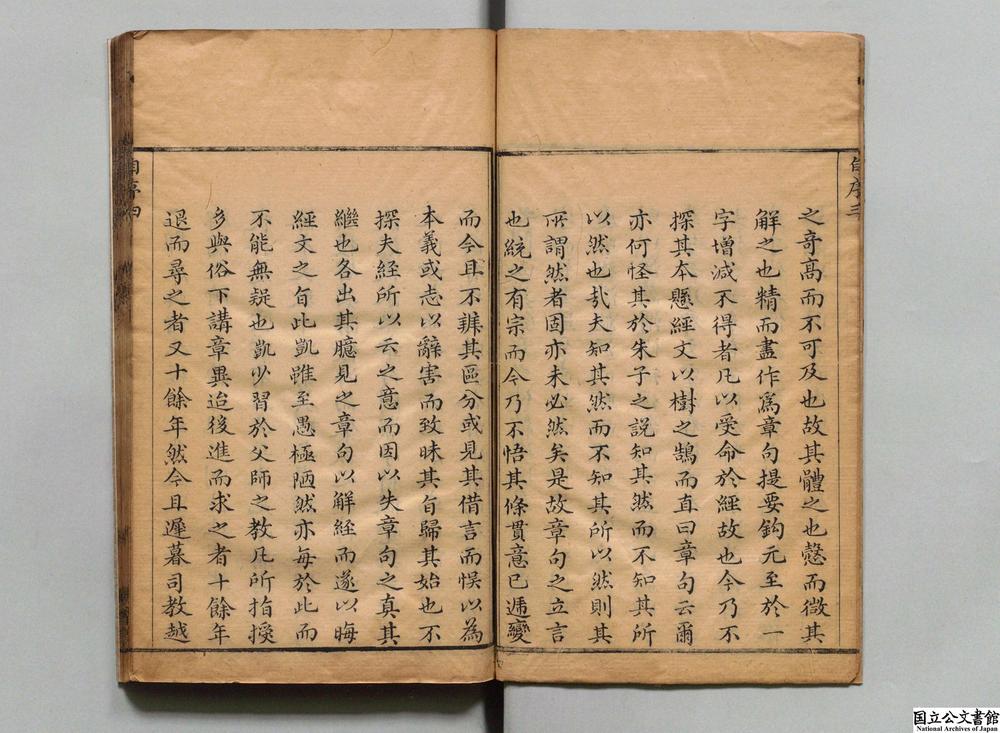 自序三
之奇高而不可及也故其體之也愨而微其
解之也精而盡作為章句提要鉤元至於一
字增減不得者凡以受命於經故也今乃不
探其本懸經文以樹之鵠而直曰章句云爾
亦何怪其於朱子之說知其然而不知其所
以然也㢤夫知其然而不知其所以然則其
所謂然者固亦未必然矣是故章句之立言
也統之有宗而今乃不悟其條貫意已遞變
而今且不辨其區分或見其借言而悞以為
本義或志以辭害而致昧其旨歸其始也不
探夫經所以云之意而因以失章句之真其
繼也各出其臆見之章句以解經而遂以晦
經文之旨此凱雖至愚極陋然亦每於此而
不能無疑也凱少習於父師之教凡所指授
多與俗下講章異迨後進而求之者十餘年
退而尋之者又十餘年然今且遲暮司教越
自序四
国立公文書館
National Archives of Japan